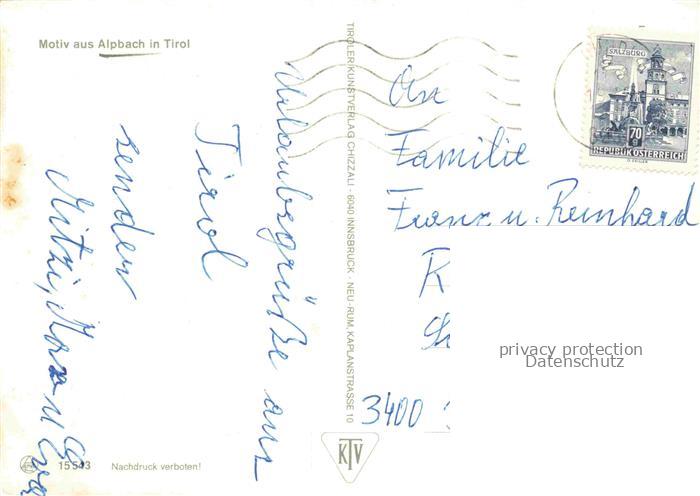 Motiv aus Alpbach in Tirol
Urlaubsgrüße aus
Tirol
senden
Mitzi, Max u
Eva
15543 Nachdruck verboten!
TIROLER KUNSTVERLAG CHIZZALI - 6040 INNSBRUCK - NEU-RUM, KAPLANSTRASSE 10
KTV
SALZBURG
70
g
REPUBLIK ÖSTERREICH
An
Familie
Franz u. Reinhard
3400
privacy protection
Datenschutz